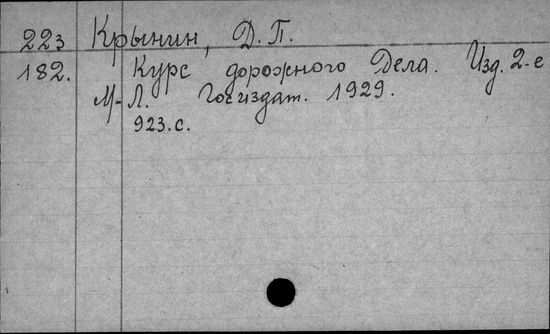 223 Крынин, Д.П.
182. Курс дорожного Дела. Изд. 2-е
М-Л. Госиздат. 1929.
923.с.